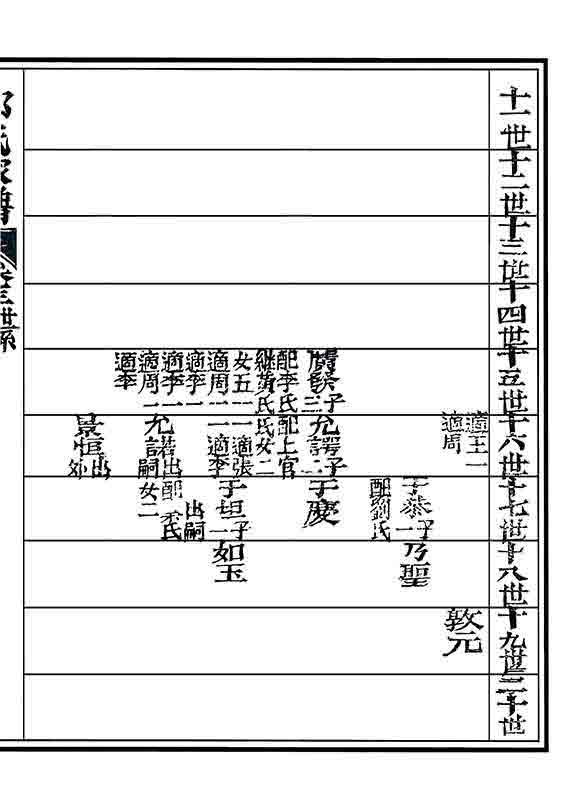 十一世十二世十三世十四世十五世十六世十七世十八世十九世二十世
敦元
適王一
適周
子恭子一乃聖
配劉氏
子三允諤子二于慶
配李氏配上官
繼黃氏氏女二
女五一一適張
適周一一適李于坦子一如玉
適李一
出嗣
適李一若出配李氏
適周一允諾嗣女二
適李
景恒出外
氏家譜
卷三世系